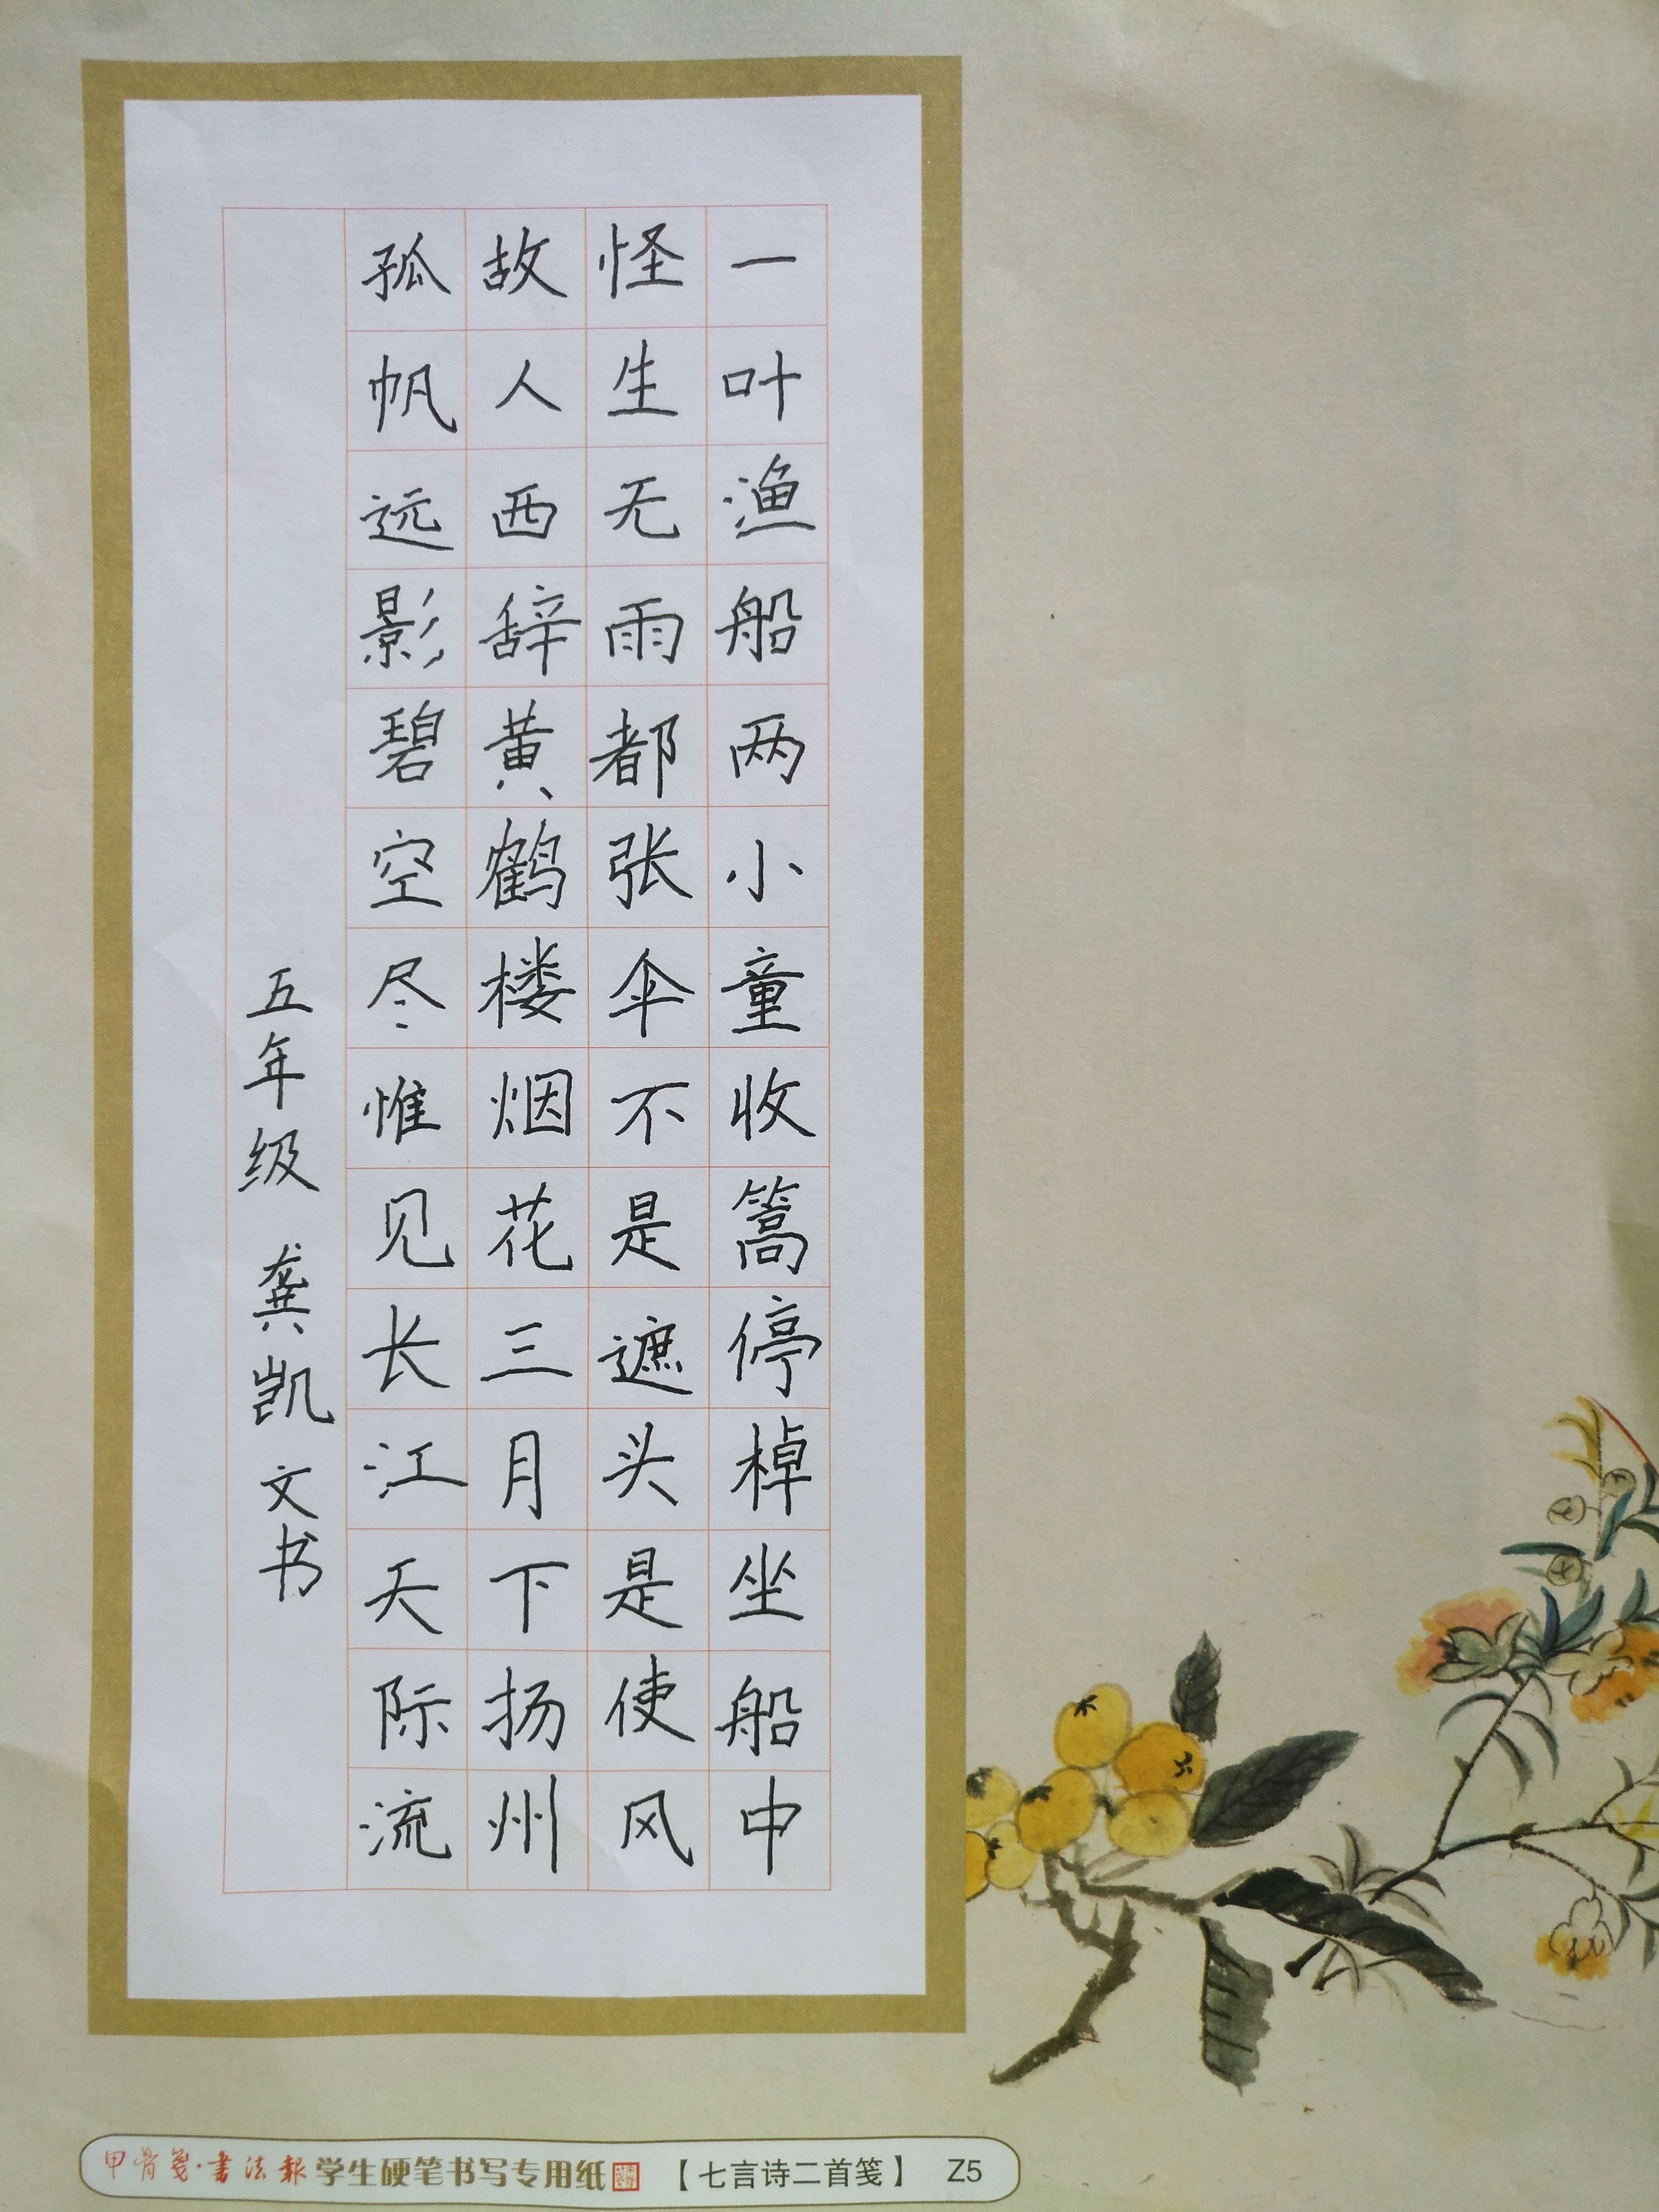 一叶渔船两小童收篙停棹坐船中
怪生无雨都张伞不是遮头是使风
故人西辞黄鹤楼烟花三月下扬州
孤帆远影碧空尽惟见长江天际流
五年级 龚凯文书
甲骨笺·书法報 学生硬笔书写专用纸 【七言诗二首笺】 Z5